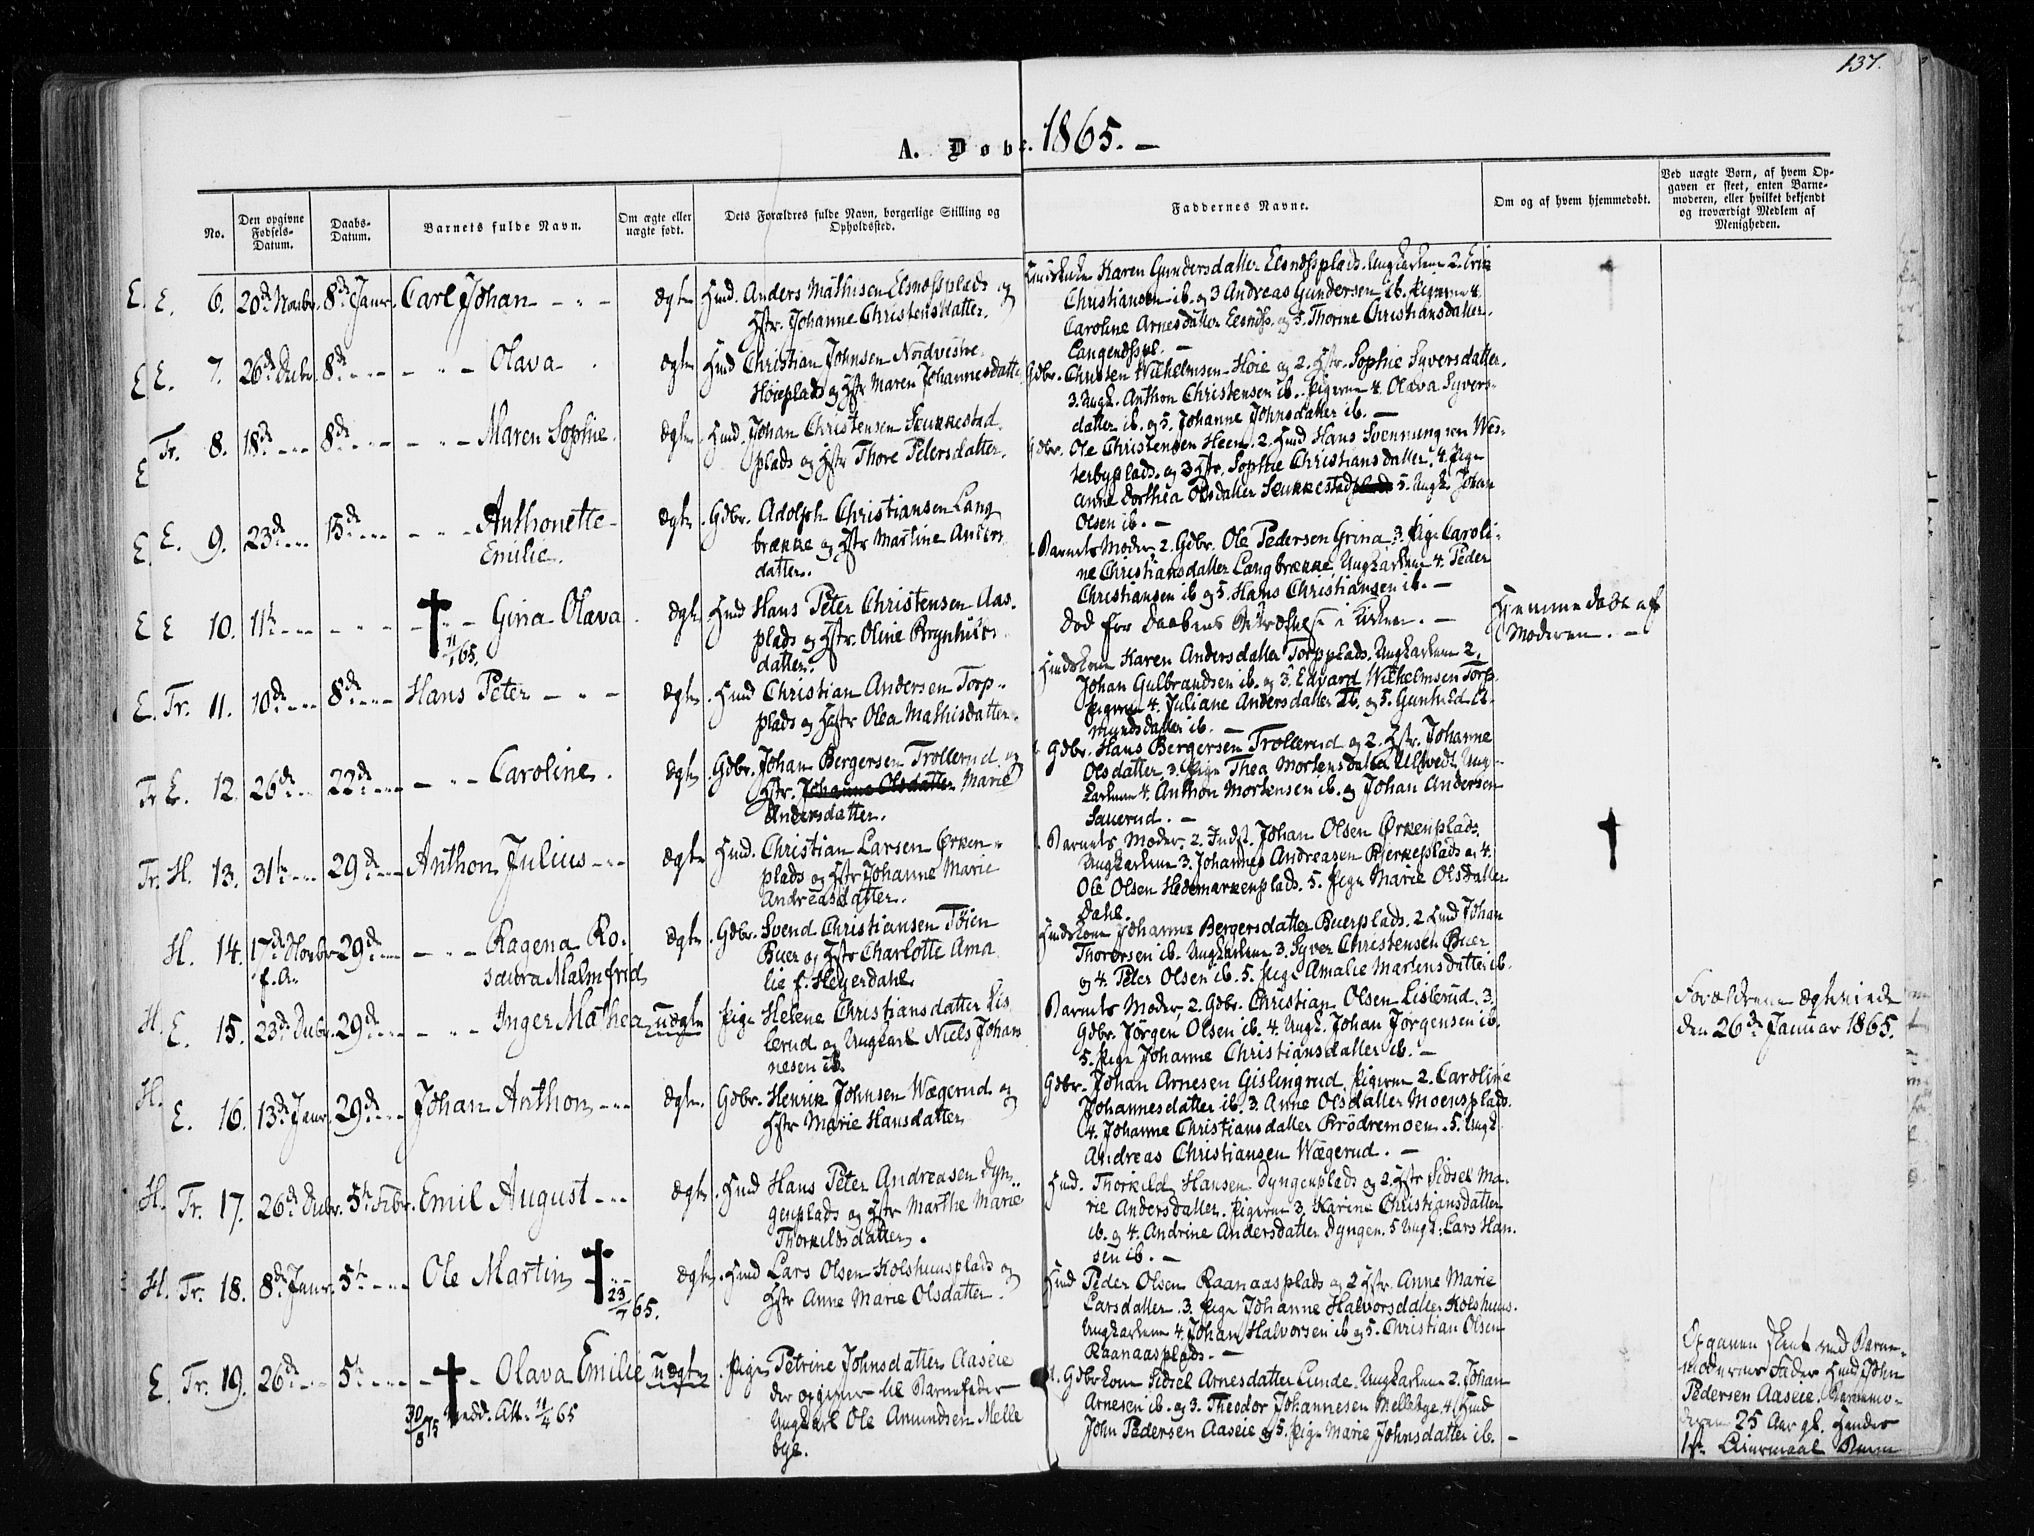 137.
A. Døbe. 1865. —
No.
Den opgivne Fødsels-Datum.
Daabs-Datum.
Barnets fulde Navn.
Om ægte eller uægte født.
Dets Forældres fulde Navn, borgerlige Stilling og Opholdssted.
Faddernes Navne.
Om og af hvem hjemmedøbt.
Ved uægte Børn, af hvem Opgaven er skeet, enten Barnemoderen, eller hvilket bekjendt og troværdigt Medlem af Menigheden.
E. E. 6. 20de Novbr. 8de Janr. Carl Johan - - - ægte
Hmd. Anders Mathisen Elsnessplads og
Hstr. Johanne Christensdatter.
Karen Gundersdatter Elsnessplads. Ungkarlene 2. Eric
Christiansen ib. og 3 Andreas Gundersen ib. Pigerne 4.
Caroline Arnesdatter Elsness. og 5. Thorine Christiansdatter
Langenesspl. —
E E. 7. 26de Decbr. 8de - - - Olava - ægte
Hmd Christian Johnsen Nordvestre
Høieplads og Hstr Maren Johannesdatter
Gdbr. Christen Wilhelmsen Høie og 2. Hstr. Sophie Syversdatter.
3. Ungk. Anthon Christensen ib. Pigerne 4. Olava Syvers-
datter ib. og 5. Johanne Johnsdatter ib. —
E Tr. 8. 18de - - - 8de - - - Maren Sophie. ægte
Hmd. Johan Christensen Skukkestad
plads og Hstr Thore Petersdatter.
Gdbr. Ole Christensen Heen. 2. Hmd Hans Svenningsen Wes-
terbyplads. og 3 Hstr. Sophie Christiansdatter. 4. Pige
Anne Dorthea Olsdatter Skukkestad 5. Ungk. Johan
Olsen ib. —
E. E. 9. 23de - - - 15de - - - Anthonette
Emilie. ægte
Gdbr. Adolph Christiansen Lang
brække og Hstr Martine Anders
datter.
Barnets Moder, 2. Gdbr. Ole Pedersen Grina. 3. Pige Caroli-
ne Christiansdatter Langbrække. Ungkarlene 4. Peder
Christiansen ib og 5. Hans Christiansen ib. —
E E 10. 11te - - - Gina Olava ægte
11/1 65.
Hmd Hans Peter Christensen Aas-
plads og Hstr. Oline Brynhils
datter.
Død før Daabens Bekræftelse i Kirken. —
Hjemmedøbt af
Moderen. —
E. Tr. 11. 10de - - - 8de - - - Hans Peter - - - ægte
Hmd Christian Andersen Torp-
plads og Hstr Olea Mathisdatter.
Karen Andersdatter Torpplads. Ungkarlene 2.
Johan Gulbrandsen ib. og 3. Edvard Wilhelmsen Torp.
Pigerne 4. Juliane Andersdatter ib. og 5. Gunhild A-
mundsdatter ib. —
Tr E. 12. 26de - - - 22de - - - Caroline. ægte
Gdbr. Johan Bergersen Trollerud og
Hstr. Johanne Olsdatter Marie
Andersdatter.
Gdbr. Hans Bergersen Trollerud og 2. Hstr. Johanne
Olsdatter. 3. Pige Thea Mortensdatter Ullvedt. Ung-
karlene 4. Anthon Mortensen ib. og Johan Andersen
Sauerud. —
Tr. H. 13. 31te - - - 29de - - - Anthon Julius - - - ægte
Hmd. Christian Larsen Ørken-
plads og Hstr Johanne Marie
Andreasdatter.
Barnets Moder, 2. Indst. Johan Olsen Ørkenplads.
Ungkarlene 3. Johannes Andreasen Bjerkesplads og 4.
Ole Olsen Hedemarkenplads. 5. Pige Marie Olsdatter
Dahl.
H. 14. 17de Novbr f. A. 29de - - - Ragena Ro-
saura Malmfrid ægte
Gdbr. Svend Christiansen Töien
Buer og Hstr Charlotte Ama
lie f. Heyerdahl.
Johanne Bergersdatter Buerplads. 2 Hmd Johan
Thoresen ib. Ungkarlene 3. Syver Christensen Buer
og 4. Peter Olsen ib. 5. Pige Amalie Martensdatter ib.
H. E. 15. 23de Decbr. 29de - - - Inger Mathea uægte
Pige Helene Christiansdatter Lis
lerud og Ungkarl Niels Johan-
nesen ib.
Barnets Moder, 2. Gdbr. Christian Olsen Lislerud. 3.
Gdbr. Jørgen Olsen ib. 4. Ungk. Johan Jørgensen ib.
5. Pige Johanne Christiansdatter ib. —
Forældrene ægteviede
den 26de Januar 1865.
H. E. 16. 13de Janr. 29de - - - Johan Anthon - - - ægte
Gdbr. Henrik Johnsen Wægerud og
Hstr Marie Hansdatter
Gdbr. Johan Arnesen Gislingrud. Pigerne 2. Caroline
Johannesdatter ib. 3. Anne Olsdatter Moensplads.
4. Johanne Christiansdatter Brødremoen. 5. Ungk.
Andreas Christiansen Wægerud. —
H. Tr. 17. 26de Decbr. 5te Febr. Emil August - - - ægte
Hmd Hans Peter Andreasen Dyn-
genplads og Hstr Marthe Marie
Thorkildsdatter.
Hmd. Thorkild Hansen Dyngenplads og 2. Hstr Sidsel Ma-
rie Andersdatter. Pigerne 3. Karine Christiansdatter
ib. og 4. Andrine Andersdatter Dyngen. 5 Ungk. Lars Han-
sen ib. —
H. Tr. 18. 8de Janr. 5te - - - Ole Martin ægte
23/7 65.
Hmd Lars Olsen Kolshuusplads og
Hstr Anne Marie Olsdatter.
Hmd Peder Olsen Raanaasplads og 2 Hstr. Anne Marie
Larsdatter. 3. Pige Johanne Halvorsdatter Kolshuus.
Ungkarlene 4. Johan Halvorsen ib og 5. Christian Olsen
Raanaasplads. —
E. Tr. 19. 26de - - - 5te - - - Olava Emilie uægte
30/8 75 Vedd. Att. 11/4 65
Pige Petrine Johnsdatter Aaseie
der opgiver til Barnefader
Ungkarl Ole Amundsen Melle
bye.
1. Gdbrkone Sidsel Arnesdatter Lunde. Ungkarlene 2. Johan
Arnesen ib. og 3. Theodor Johannesen Mellebye. 4. Hmd
John Pedersen Aaseie og 5. Pige Marie Johnsdatter ib. —
Opgaven skeet ved Barne-
moderens Fader Hmd John
Pedersen Aaseie. Barnemo-
deren 25 Aar gl. Hendes
1ste Leiermaal